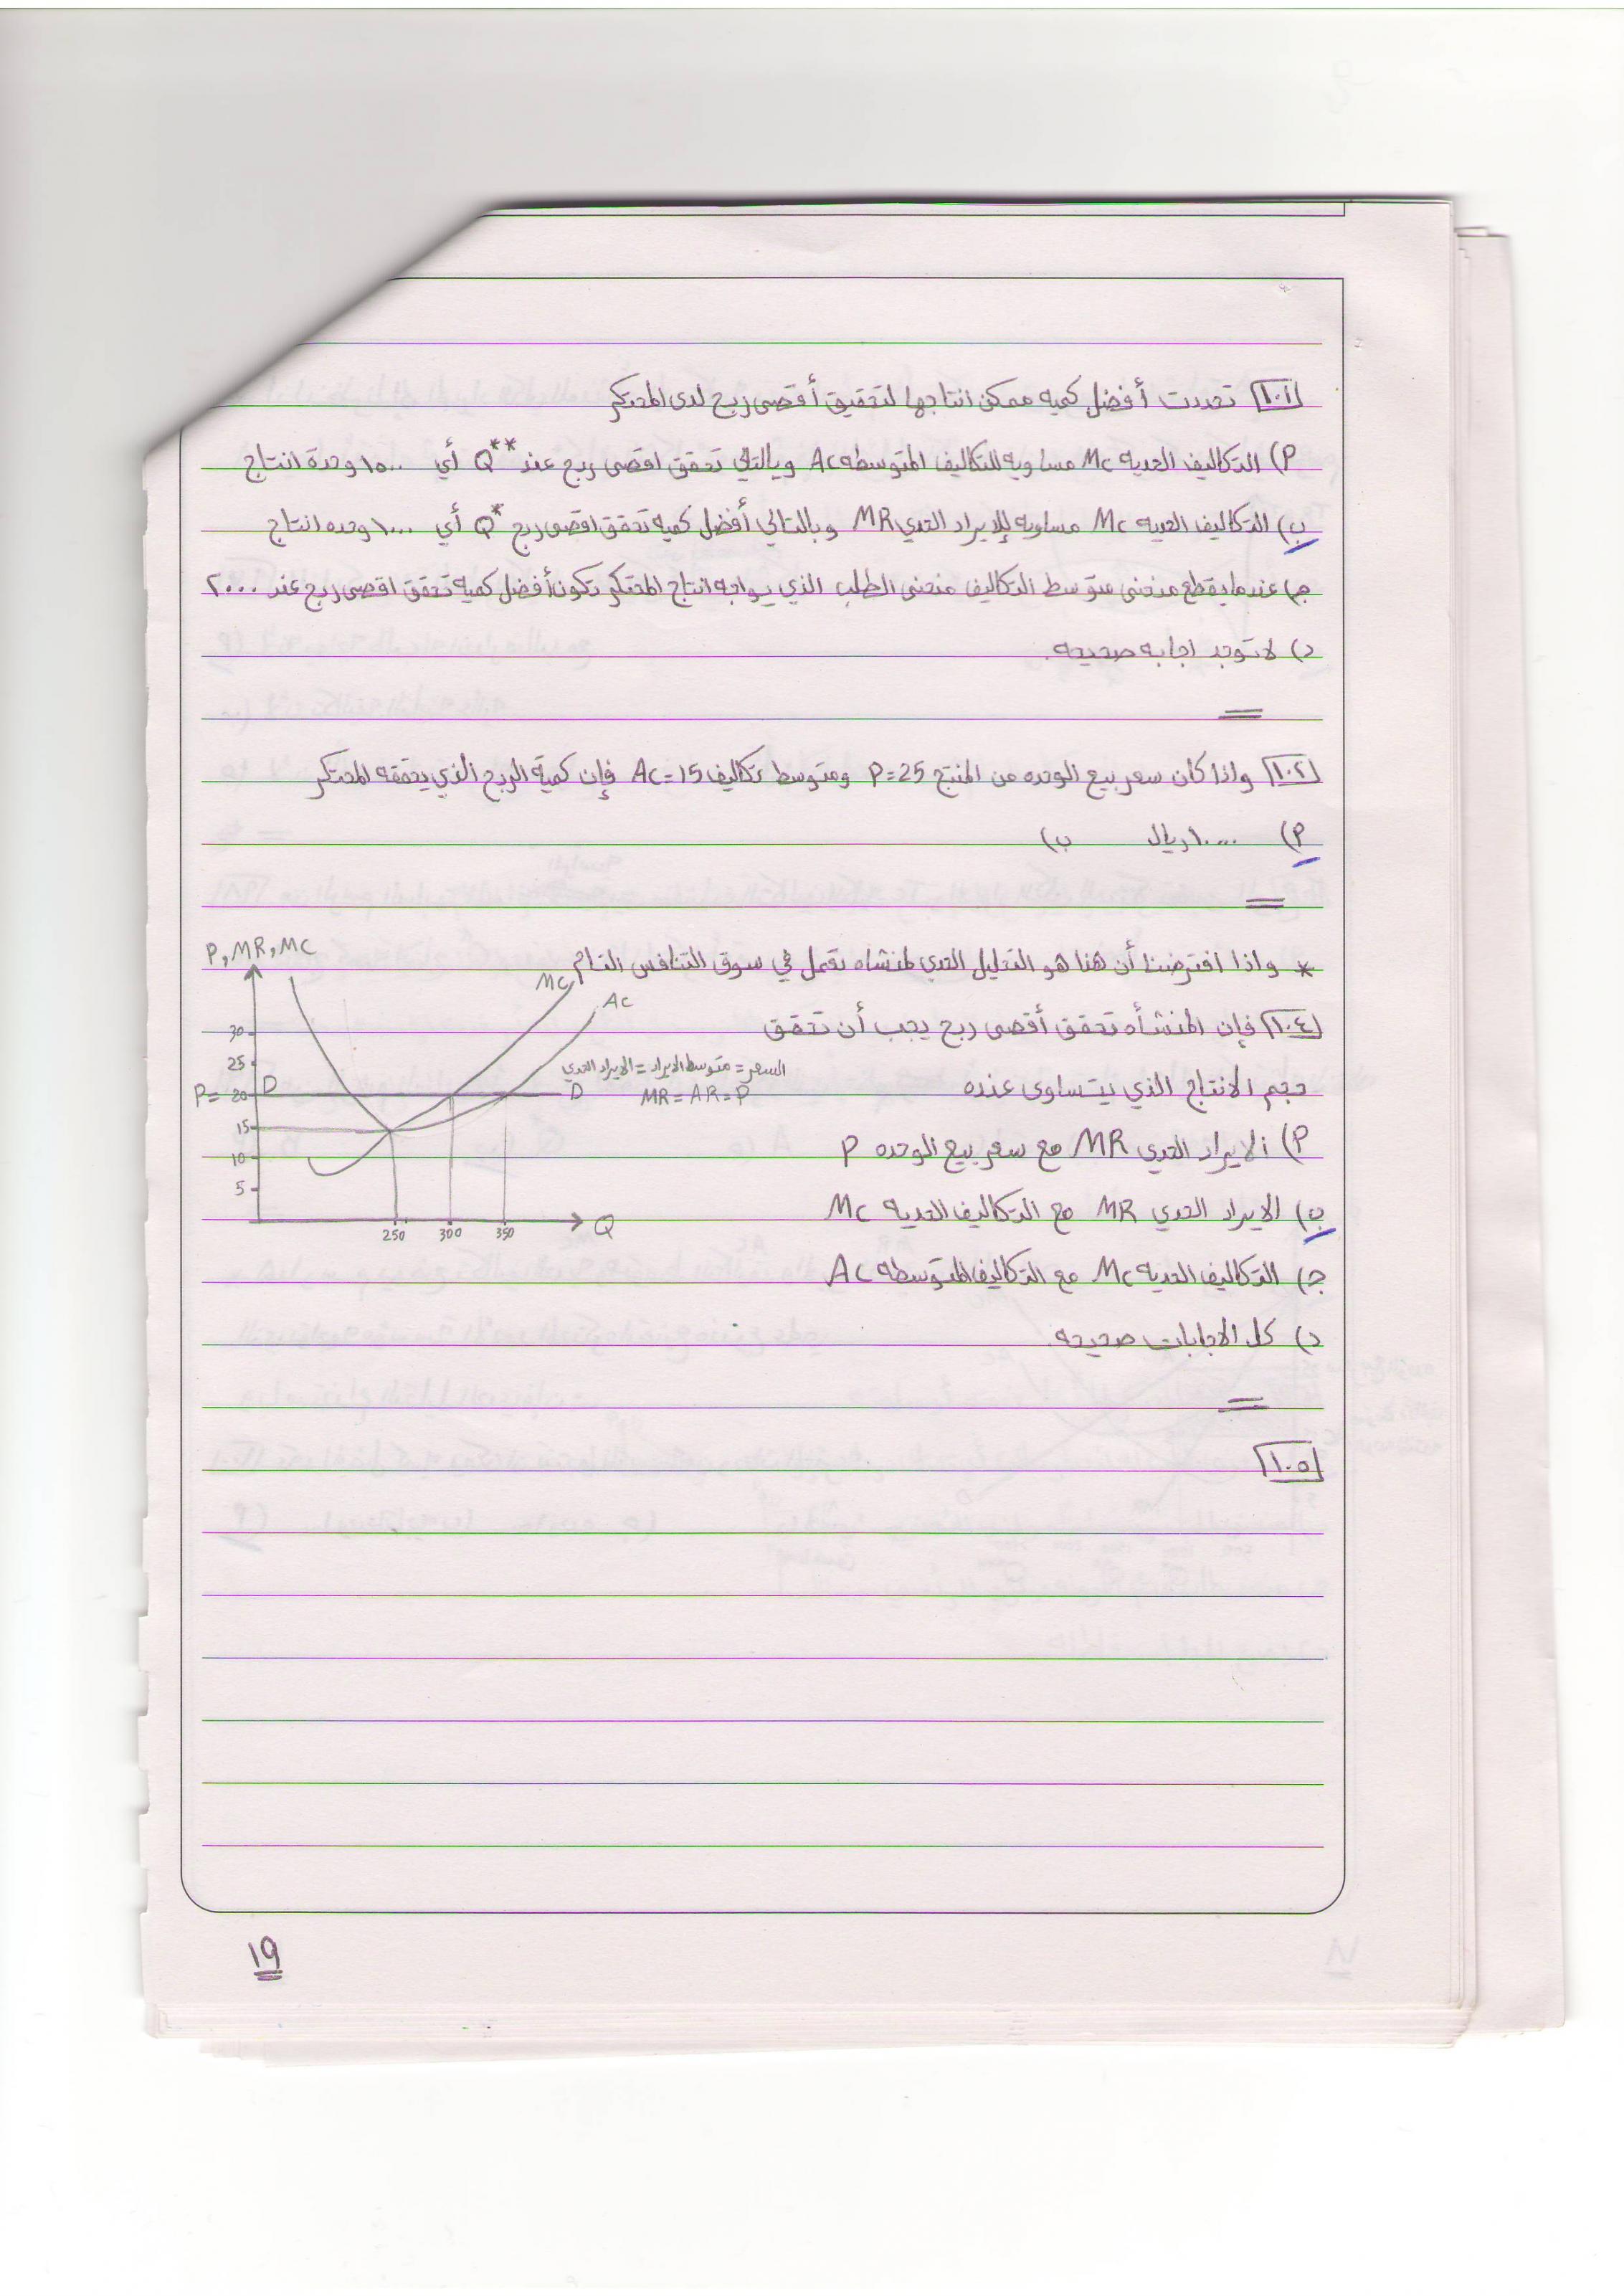 ١٠١ تحددت أفضل كميه ممكن انتاجها لتحقيق أقصى ربح لدى المحتكر
أ) التكاليف الحديه MC مساويه للتكاليف المتوسطه AC وبالتالي تحقق اقصى ربح عند Q** أي ١٥٠٠ وحدة انتاج
ب) التكاليف الحديه MC مساويه للإيراد الحدي MR وبالتالي أفضل كميه تحقق اقصى ربح Q* أي ١٠٠٠ وحده انتاج
ج) عندما يقطع منحنى متوسط التكاليف منحنى الطلب الذي يواجه انتاج المحتكر تكون أفضل كميه تحقق اقصى ربح عند ٢٠٠٠
د) لا توجد اجابه صحيحه.
١٠٢ واذا كان سعر بيع الوحده من المنتج P=25 ومتوسط تكاليف AC=15 فإن كمية الربح الذي يحققه المحتكر
أ) ١٠٠٠٠ ريال ب)
* واذا افترضنا أن هذا هو التحليل الحدي لمنشاه تعمل في سوق التنافس التام
١٠٤ فإن المنشأه تحقق أقصى ربح يجب أن تحقق
حجم الانتاج الذي يتساوى عنده
أ) الايراد الحدي MR مع سعر بيع الوحده P
ب) الايراد الحدي MR مع التكاليف الحديه MC
ج) التكاليف الحديه MC مع التكاليف المتوسطه AC
د) كل الاجابات صحيحه.
١٠٥
P, MR, MC
MC
AC
30
25
P= 20
D
D
السعر = متوسط الايراد = الايراد الحدي
MR = AR = P
15
10
5
250 300 350
Q
١٩